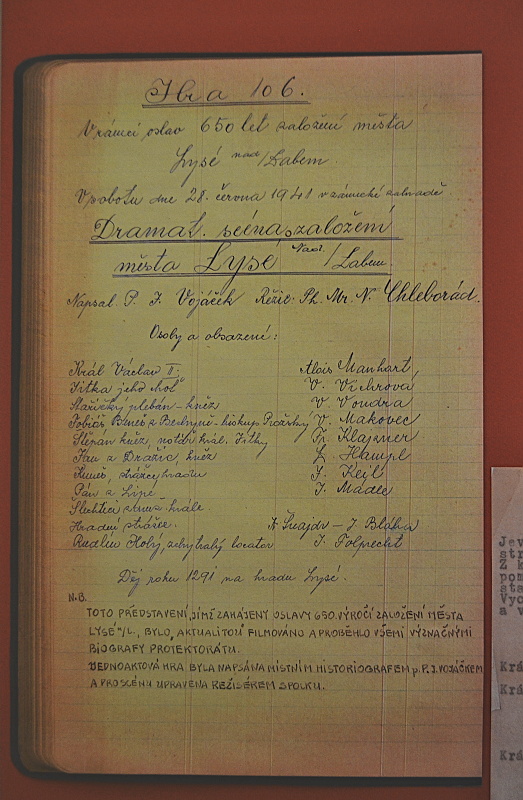 Hra 106.
V rámci oslav 650 let založení města
Lysé nad/Labem.
V sobotu dne 28. června 1941 v zámecké zahradě.
Dramat. scéna, založení
města Lysé nad/Labem.
Napsal P. F. Vojáček Režie: Ph. Mr. N. Chleborád.
Osoby a obsazené:
Král Václav II: Alois Manhart
Jitka jeho choť V. Vichrova
Stařičký plebán - kněz V. Voudra
Tobiáš z biskup Pražský V. Makovec
Štěpán kněz, notář král. Jitky Fr. Klazner
Jan z Dražic, kněz Hampl
Kuneš, strážce hradu J. Kejl
Pán z Lipé J. Madec
Šlechtici krále
Hradní strážce. Švajdr - J. Bláha
Rudlin Holý, locator J. Folprecht
Děj roku 1291 na hradu Lysé.
N.B.
TOTO PŘEDSTAVENÍ, JÍMŽ ZAHÁJENY OSLAVY 650. VÝROČÍ ZALOŽENÍ MĚSTA
LYSÉ N/L., BYLO "AKTUALITOU" FILMOVÁNO A PROBĚHLO VŠEMI VÝZNAČNÝMI
BIOGRAFY PROTEKTORÁTU.
JEDNOAKTOVÁ HRA BYLA NAPSÁNA MÍSTNÍM HISTORIOGRAFEM p. P. J. VOJÁČKEM
A PRO SCÉNU UPRAVENA REŽISÉREM SPOLKU.
Jev
str
Z k
pom
sta
Vyc
a v
Krá
Krá
Krá